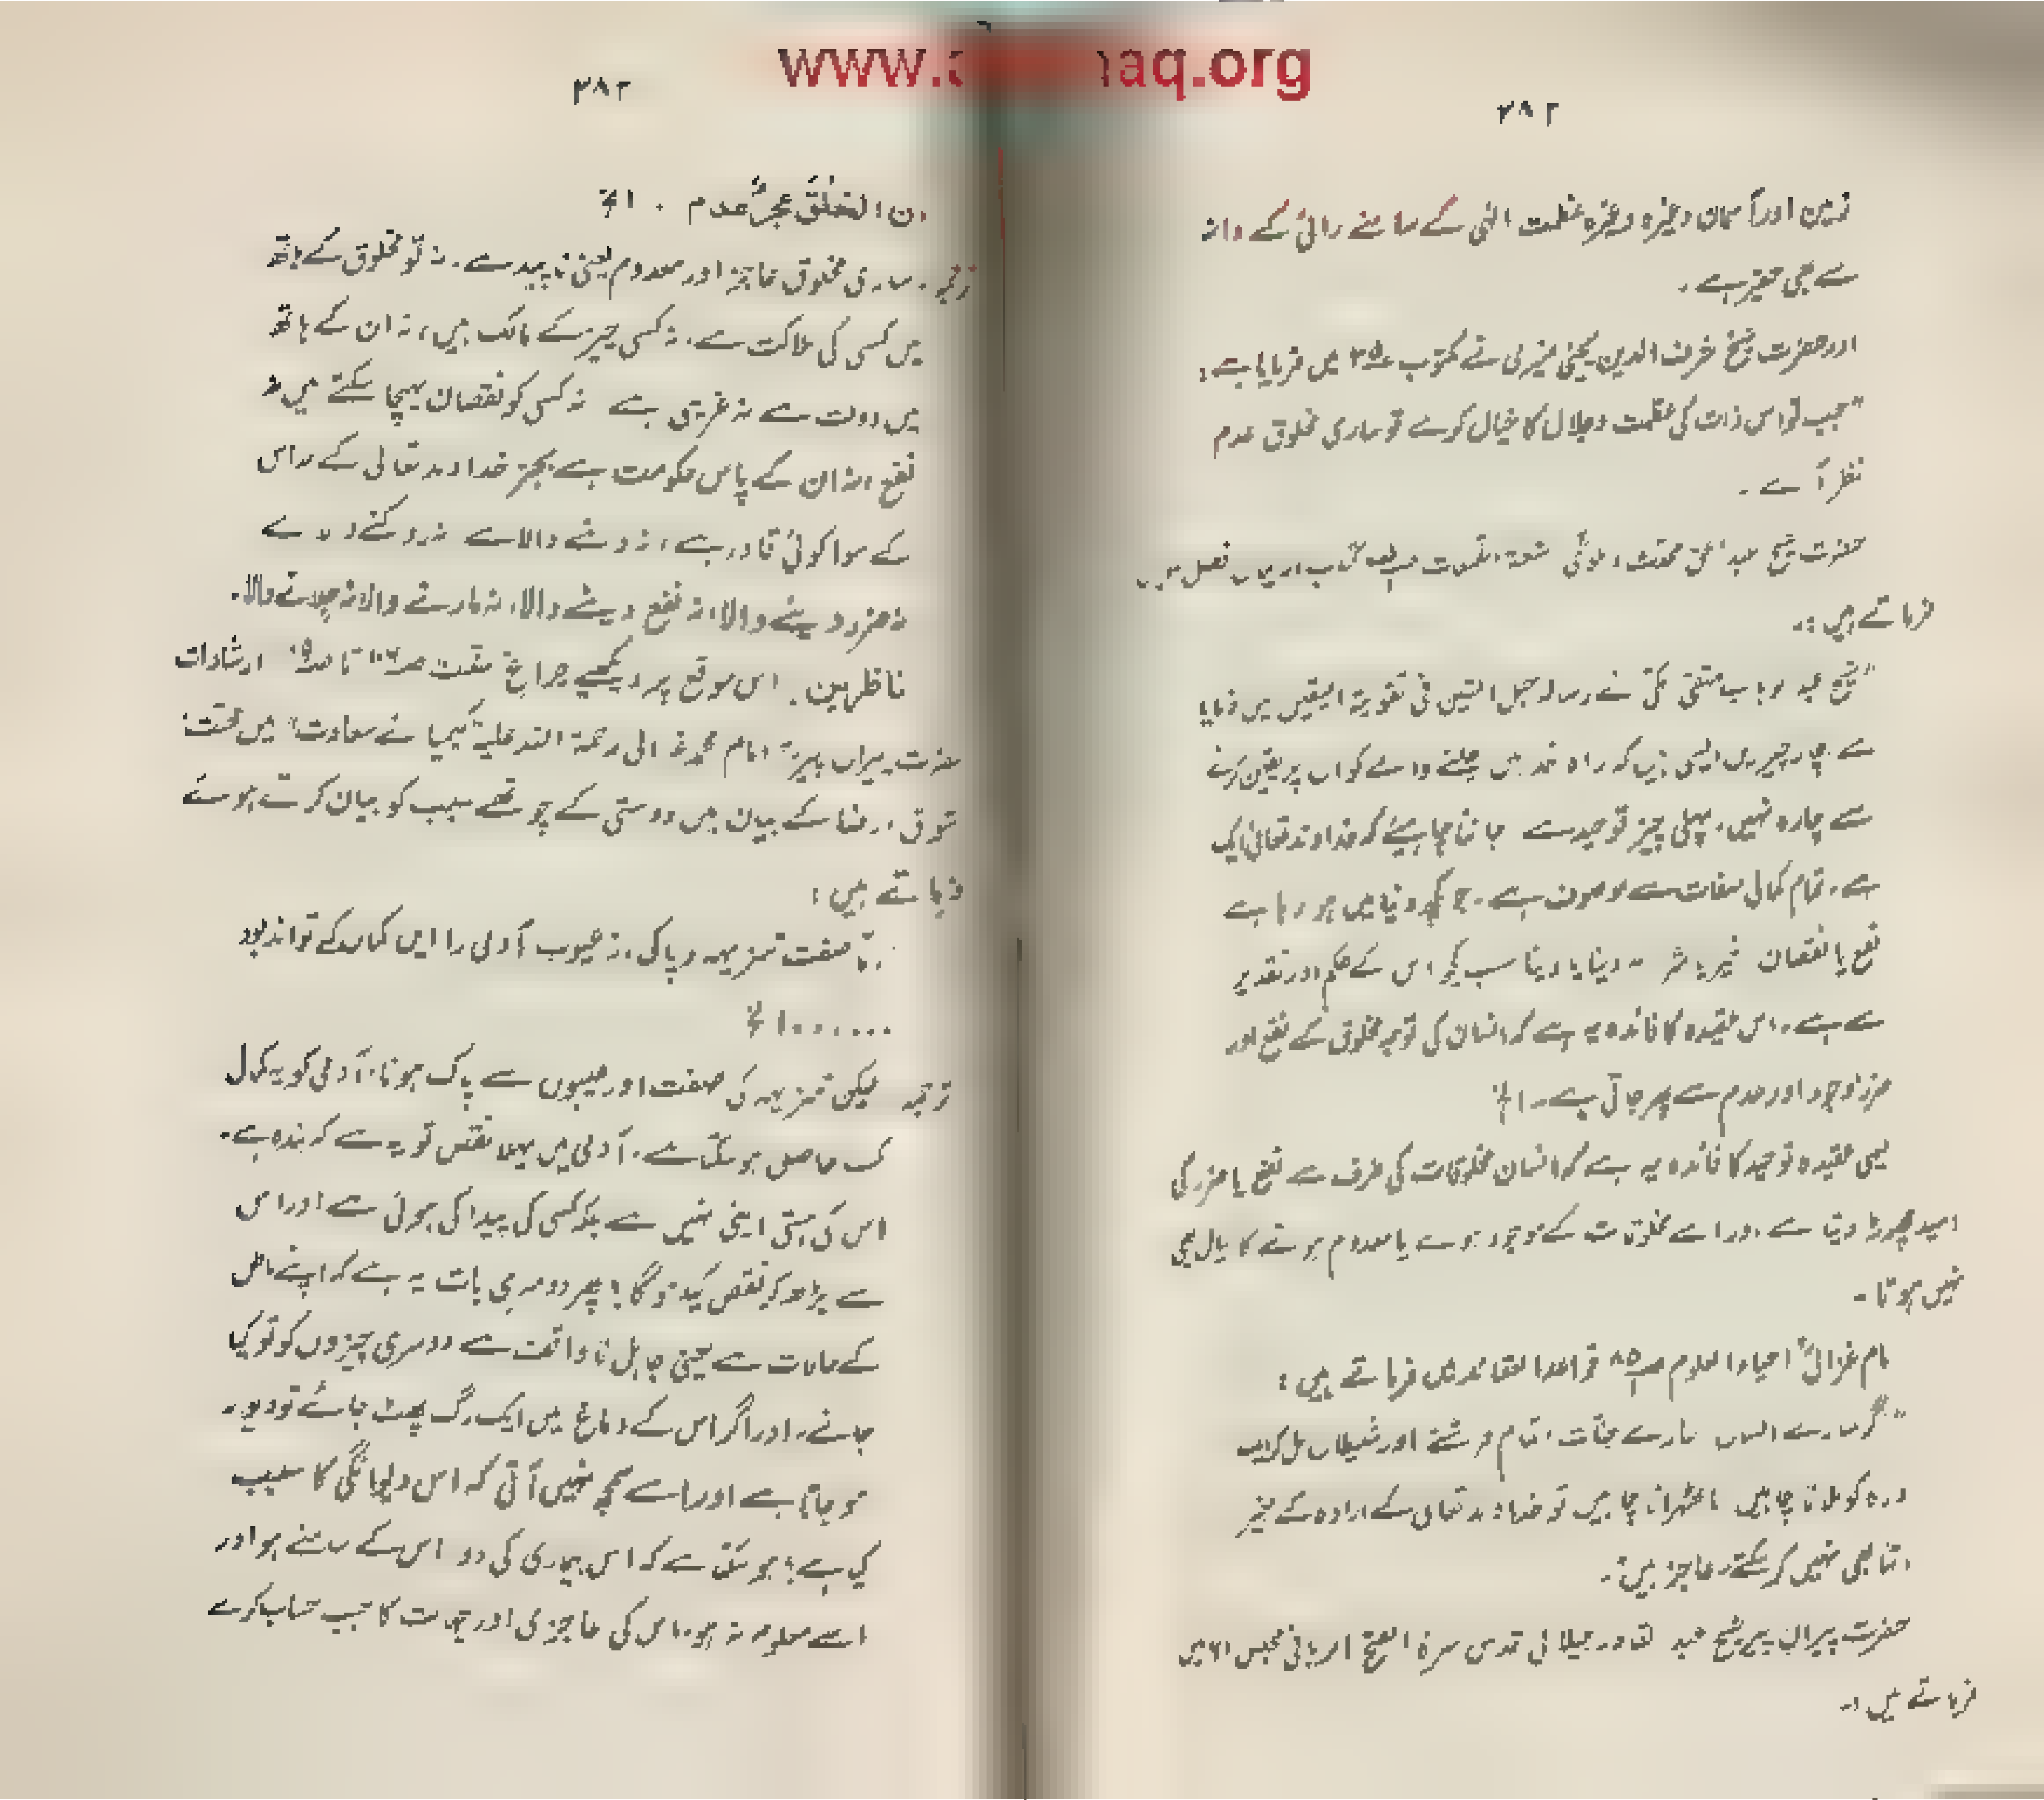 ۲۸۲
زمین اور آسمان وغیرہ وغیرہ عظمت الٰہی کے سامنے رائی کے دانہ
سے بھی حقیر ہے۔
اور حضرت شیخ شرف الدین یحییٰ منیری نے مکتوب میں فرمایا ہے:
"جب تو اس ذات کی عظمت و جلال کا خیال کرے تو ساری مخلوق عدم
نظر آئے۔
حضرت شیخ عبد الحق محدث دہلوی
فرماتے ہیں:۔
"شیخ عبد الوہاب متقی مکی نے رسالہ حبل المتین فی تقویۃ الیقین میں فرمایا
ہے۔ چار چیزیں ایسی ہیں کہ راہ خدا میں چلنے والے کو ان پر یقین کرنے
سے چارہ نہیں۔ پہلی چیز توحید ہے جاننا چاہیئے کہ خداوند تعالیٰ ایک
ہے۔ تمام کمالی صفات سے موصوف ہے۔ جو کچھ دنیا میں ہو رہا ہے
نفع یا نقصان خیر یا شر دینا یا نہ دینا سب کچھ اس کے حکم اور تقدیر
سے ہے۔ اس عقیدہ کا فائدہ یہ ہے کہ انسان کی توجہ مخلوق کے نفع اور
ضرر وجود اور عدم سے پھر جاتی ہے۔ الخ
یعنی عقیدہ توحید کا فائدہ یہ ہے کہ انسان مخلوقات کی طرف سے نفع یا ضرر کی
امید چھوڑ دیتا ہے اور اسے مخلوقات کے موجود ہونے یا معدوم ہونے کا خیال بھی
نہیں ہوتا۔
امام غزالیؒ احیاء العلوم قواعد العقائد میں فرماتے ہیں:
"اگر سارے انسان سارے جنّات، تمام فرشتے اور شیطان مل کر ایک
ذرہ کو ہلانا چاہیں یا ٹھہرانا چاہیں تو خداوند تعالیٰ کے ارادہ کے بغیر
اتنا بھی نہیں کر سکتے۔ عاجز ہیں"۔
حضرت پیران پیر شیخ عبد القادر جیلانی قدس سرہٗ الفتح الربانی مجلس میں
فرماتے ہیں:۔
۲۸۳
ان الخلق عجزٌ عدم ۔ الخ
ترجمہ۔ ساری مخلوق عاجز اور معدوم یعنی ناپید ہے۔ نہ تو مخلوق کے ہاتھ
میں کسی کی ہلاکت ہے۔ نہ کسی چیز کے مالک ہیں، نہ ان کے ہاتھ
میں دولت ہے نہ غریبی ہے نہ کسی کو نقصان پہنچا سکتے ہیں نہ
نفع، نہ ان کے پاس حکومت ہے بجز خداوند تعالیٰ کے نہ اس
کے سوا کوئی قادر ہے، نہ دینے والا ہے نہ روکنے والا ہے
نہ ضرر دینے والا، نہ نفع دینے والا، نہ مارنے والا نہ جلانے والا۔
ناظرین۔ اس موقع پر دیکھیے چراغ سنت تا ارشادات
حضرت پیران پیر" امام محمد غزالی رحمۃ اللہ علیہ کیمیائے سعادت" میں محبت،
شوق، رضا کے بیان میں دوستی کے چوتھے سبب کو بیان کرتے ہوئے
فرماتے ہیں:
اما صفت تنزیہہ و پاکی از عیوب آدمی را ایں کمال کے تواند بود
.......الخ
ترجمہ لیکن تنزیہہ کی صفت اور عیبوں سے پاک ہونا، آدمی کو یہ کمال
کب حاصل ہو سکتا ہے۔ آدمی میں پہلا نقص تو یہ ہے کہ بندہ ہے۔
اس کی ہستی اپنی نہیں ہے بلکہ کسی کی پیدا کی ہوئی ہے اور اس
سے بڑھ کر نقص کیا ہو گا؟ پھر دوسری بات یہ ہے کہ اپنے باطن
کے حالات سے یعنی جاہل ناواقف ہے دوسری چیزوں کو تو کیا
جانے۔ اور اگر اس کے دماغ میں ایک رگ پھٹ جائے تو دیوانہ
ہو جاتا ہے اور اسے سمجھ نہیں آتی کہ اس دیوانگی کا سبب
کیا ہے؟ ہو سکتا ہے کہ اس بیماری کی دوا اس کے سامنے ہو اور
اسے معلوم نہ ہو۔ اس کی عاجزی اور جہالت کا جب حساب کرے